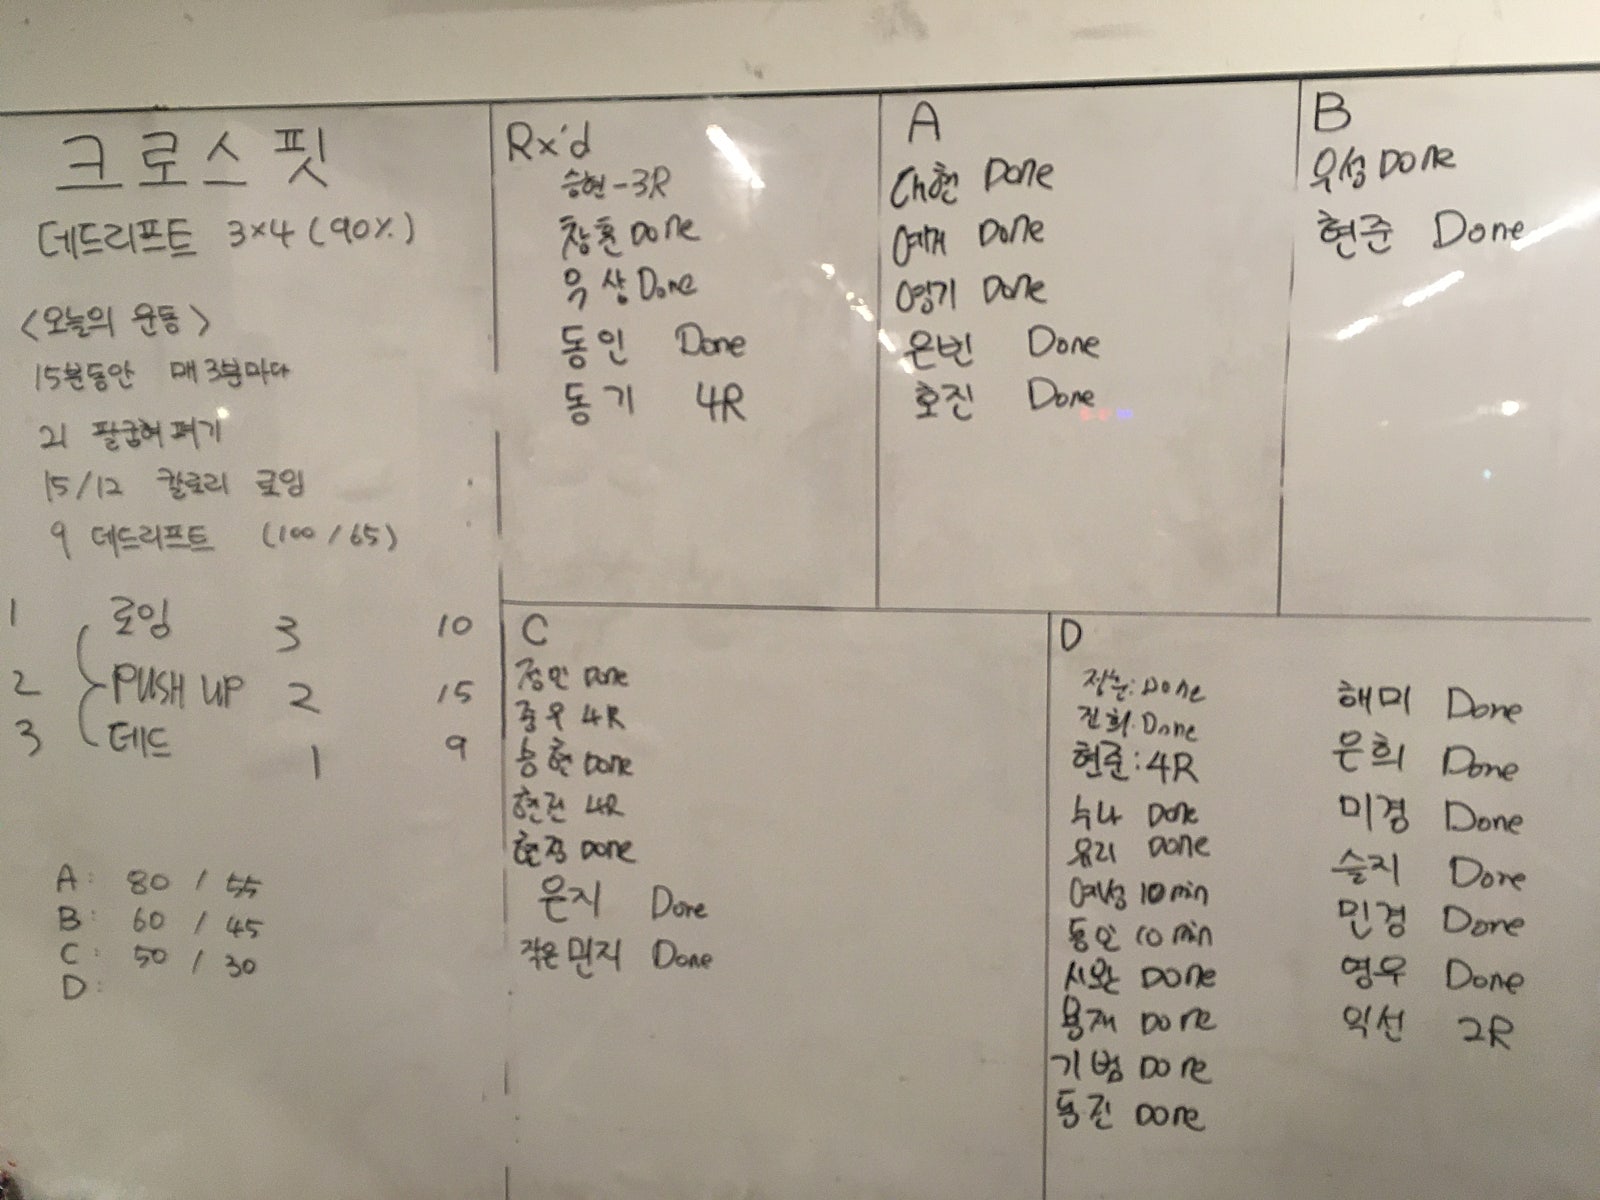 크로스핏
데드리프트 3×4 (90%)
<오늘의 운동>
15분동안 매 3분마다
21 팔굽혀펴기
15/12 칼로리 로잉
9 데드리프트 (100/65)
1 로잉 3 10
2 PUSH UP 2 15
3 데드 1 9
A: 80 / 55
B: 60 / 45
C: 50 / 30
D:
Rx'd
승현-3R
창훈 Done
욱상 Done
동인 Done
동기 4R
A
대현 Done
Done
영기 Done
은빈 Done
호진 Done
B
우성 Done
현준 Done
C
정민 Done
중우 4R
승현 Done
4R
현정 Done
은지 Done
작은민지 Done
D
Done
진희: Done
현준: 4R
누나 Done
유리 Done
여성 10min
동인 10min
시완 Done
용재 Done
기범 Done
동진 Done
해미 Done
은희 Done
미경 Done
슬지 Done
민경 Done
영우 Done
익선 2R